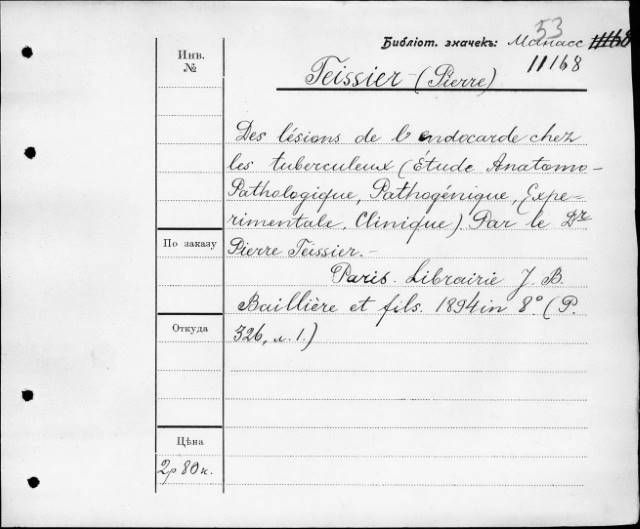 53
Библіот. значекъ: Манасс 11168
11168
Инв.
№
Teissier (Pierre)
Des lésions de l'endocarde chez
les tuberculeux (Étude Anatomo-
Pathologique, Pathogénique, Expe-
rimentale, Clinique). Par le Dr
По заказу
Pierre Teissier.-
Paris. Librairie J. B.
Baillière et fils. 1894 in 8° (P.
Откуда
326, л. 1.)
Цѣна
2р 80к.